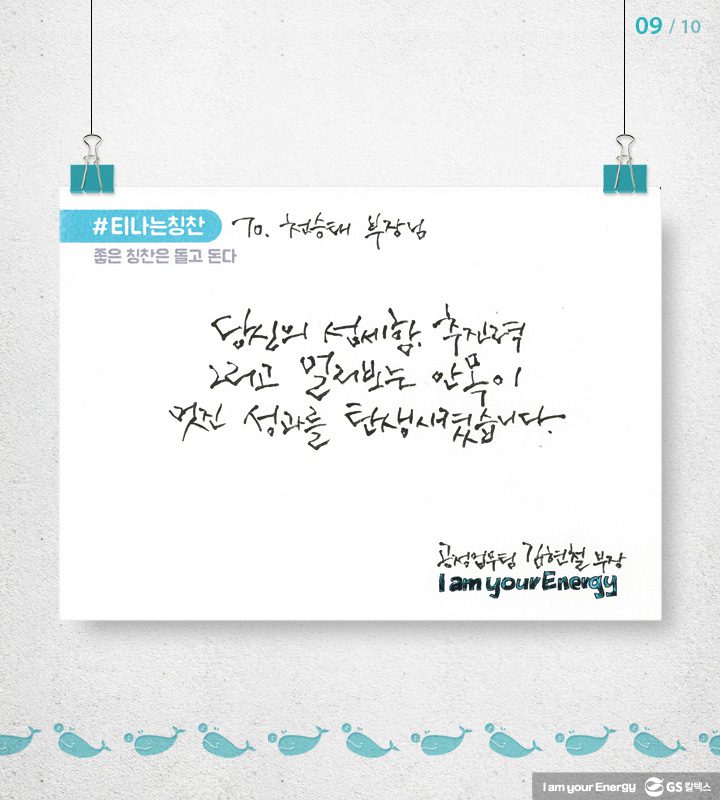 09 / 10
#티나는칭찬
To. 천승태 부장님
좋은 칭찬은 돌고 돈다
당신의 섬세함, 추진력
그리고 멀리보는 안목이
멋진 성과를 탄생시켰습니다.
공정업무팀 김현철 부장
I am your Energy
I am your Energy GS칼텍스